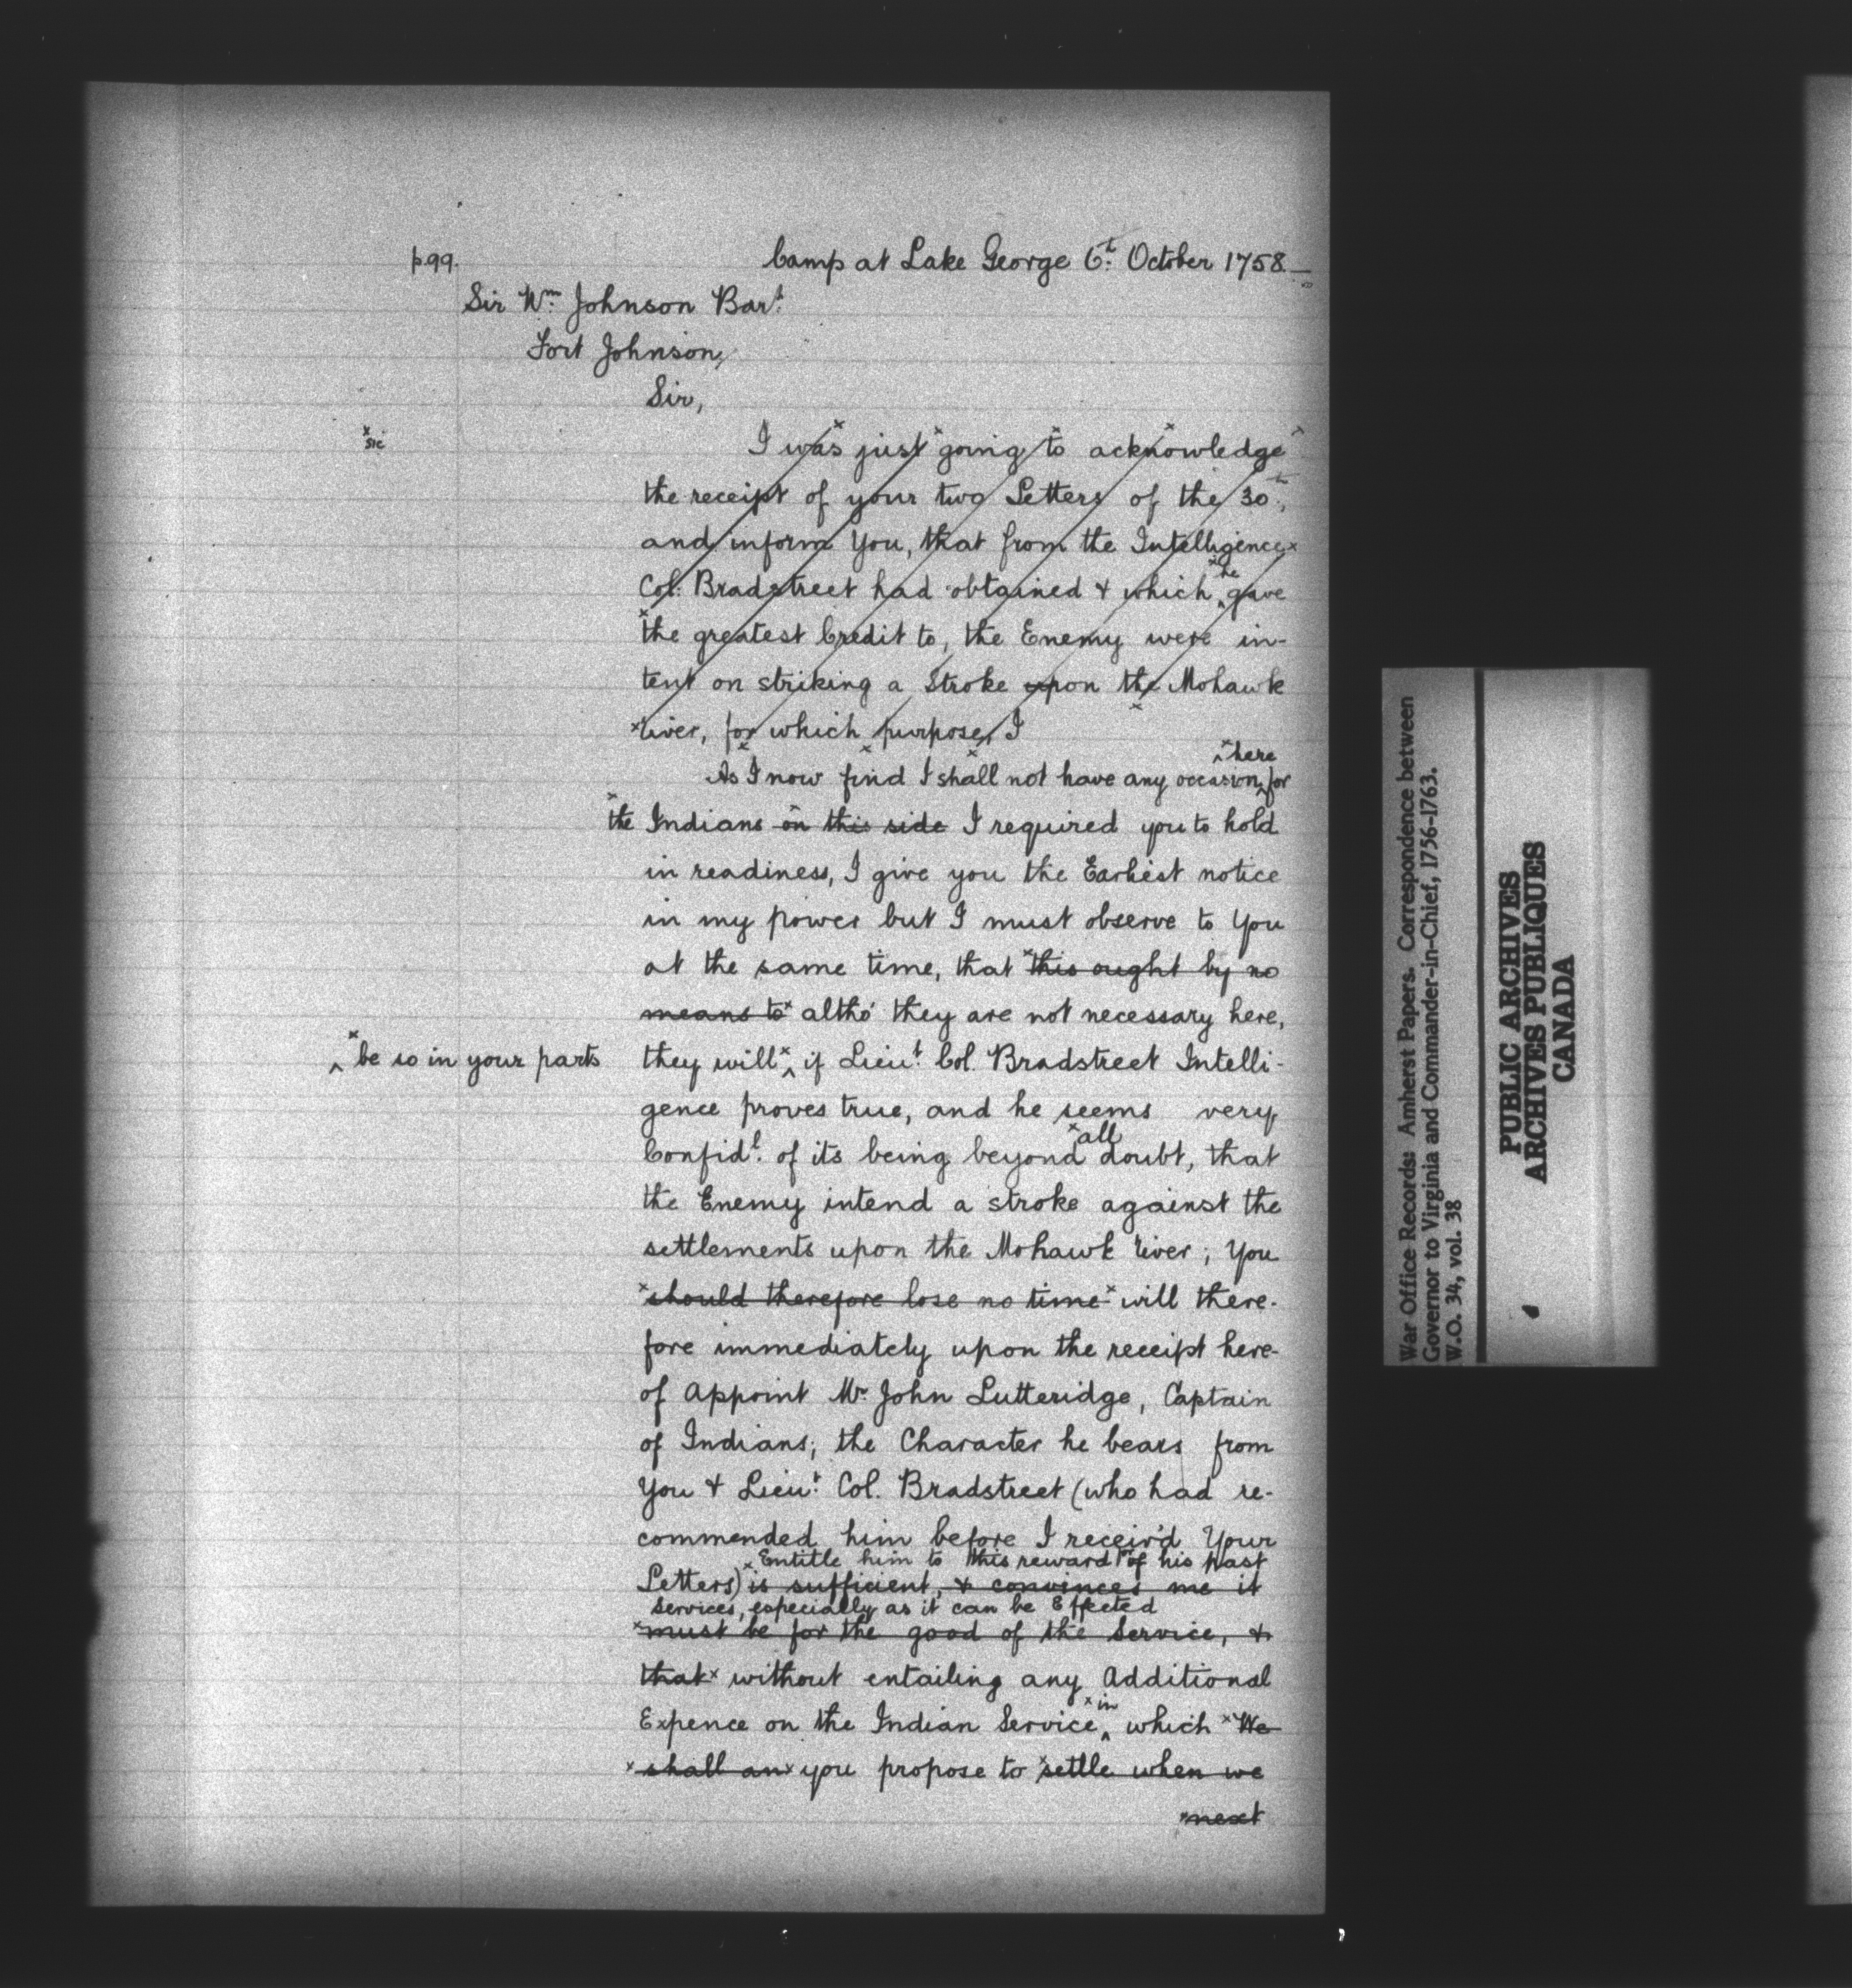 p.99. Camp at Lake George 6th October 1758.
Sir Wm Johnson Bart
Fort Johnson,
Sir,
x sic
I was just going to acknowledge
the receipt of your two Letters of the 30th,
and inform You, that from the Intelligence
Col. Bradstreet had obtained & which he gave
the greatest Credit to, the Enemy were in-
tent on striking a Stroke upon the Mohawk
river, for which purpose, I
As I now find I shall not have any occasion here for
the Indians on this side I required you to hold
in readiness, I give you the Earliest notice
in my power but I must observe to You
at the same time, that this ought by no
means to altho' they are not necessary here,
they will be so in your parts if Lieut Col. Bradstreet Intelli-
gence proves true, and he seems very
Confidt. of its being beyond all doubt, that
the Enemy intend a stroke against the
settlements upon the Mohawk river; You
should therefore lose no time will there-
fore immediately upon the receipt here-
of Appoint Mr John Lutteridge, Captain
of Indians; the Character he bears from
You & Lieut Col. Bradstreet (who had re-
commended him before I receiv'd Your
Entitle him to this reward of his past
Letters) is sufficient, & convinces me it
Services, especially as it can be Effected
must be for the good of the Service, &
that without entailing any Additional
Expence on the Indian Service in which We
shall an you propose to settle when we
next
War Office Records: Amherst Papers. Correspondence between
Governor to Virginia and Commander-in-Chief, 1756-1763.
W.O. 34, vol. 38
PUBLIC ARCHIVES
ARCHIVES PUBLIQUES
CANADA